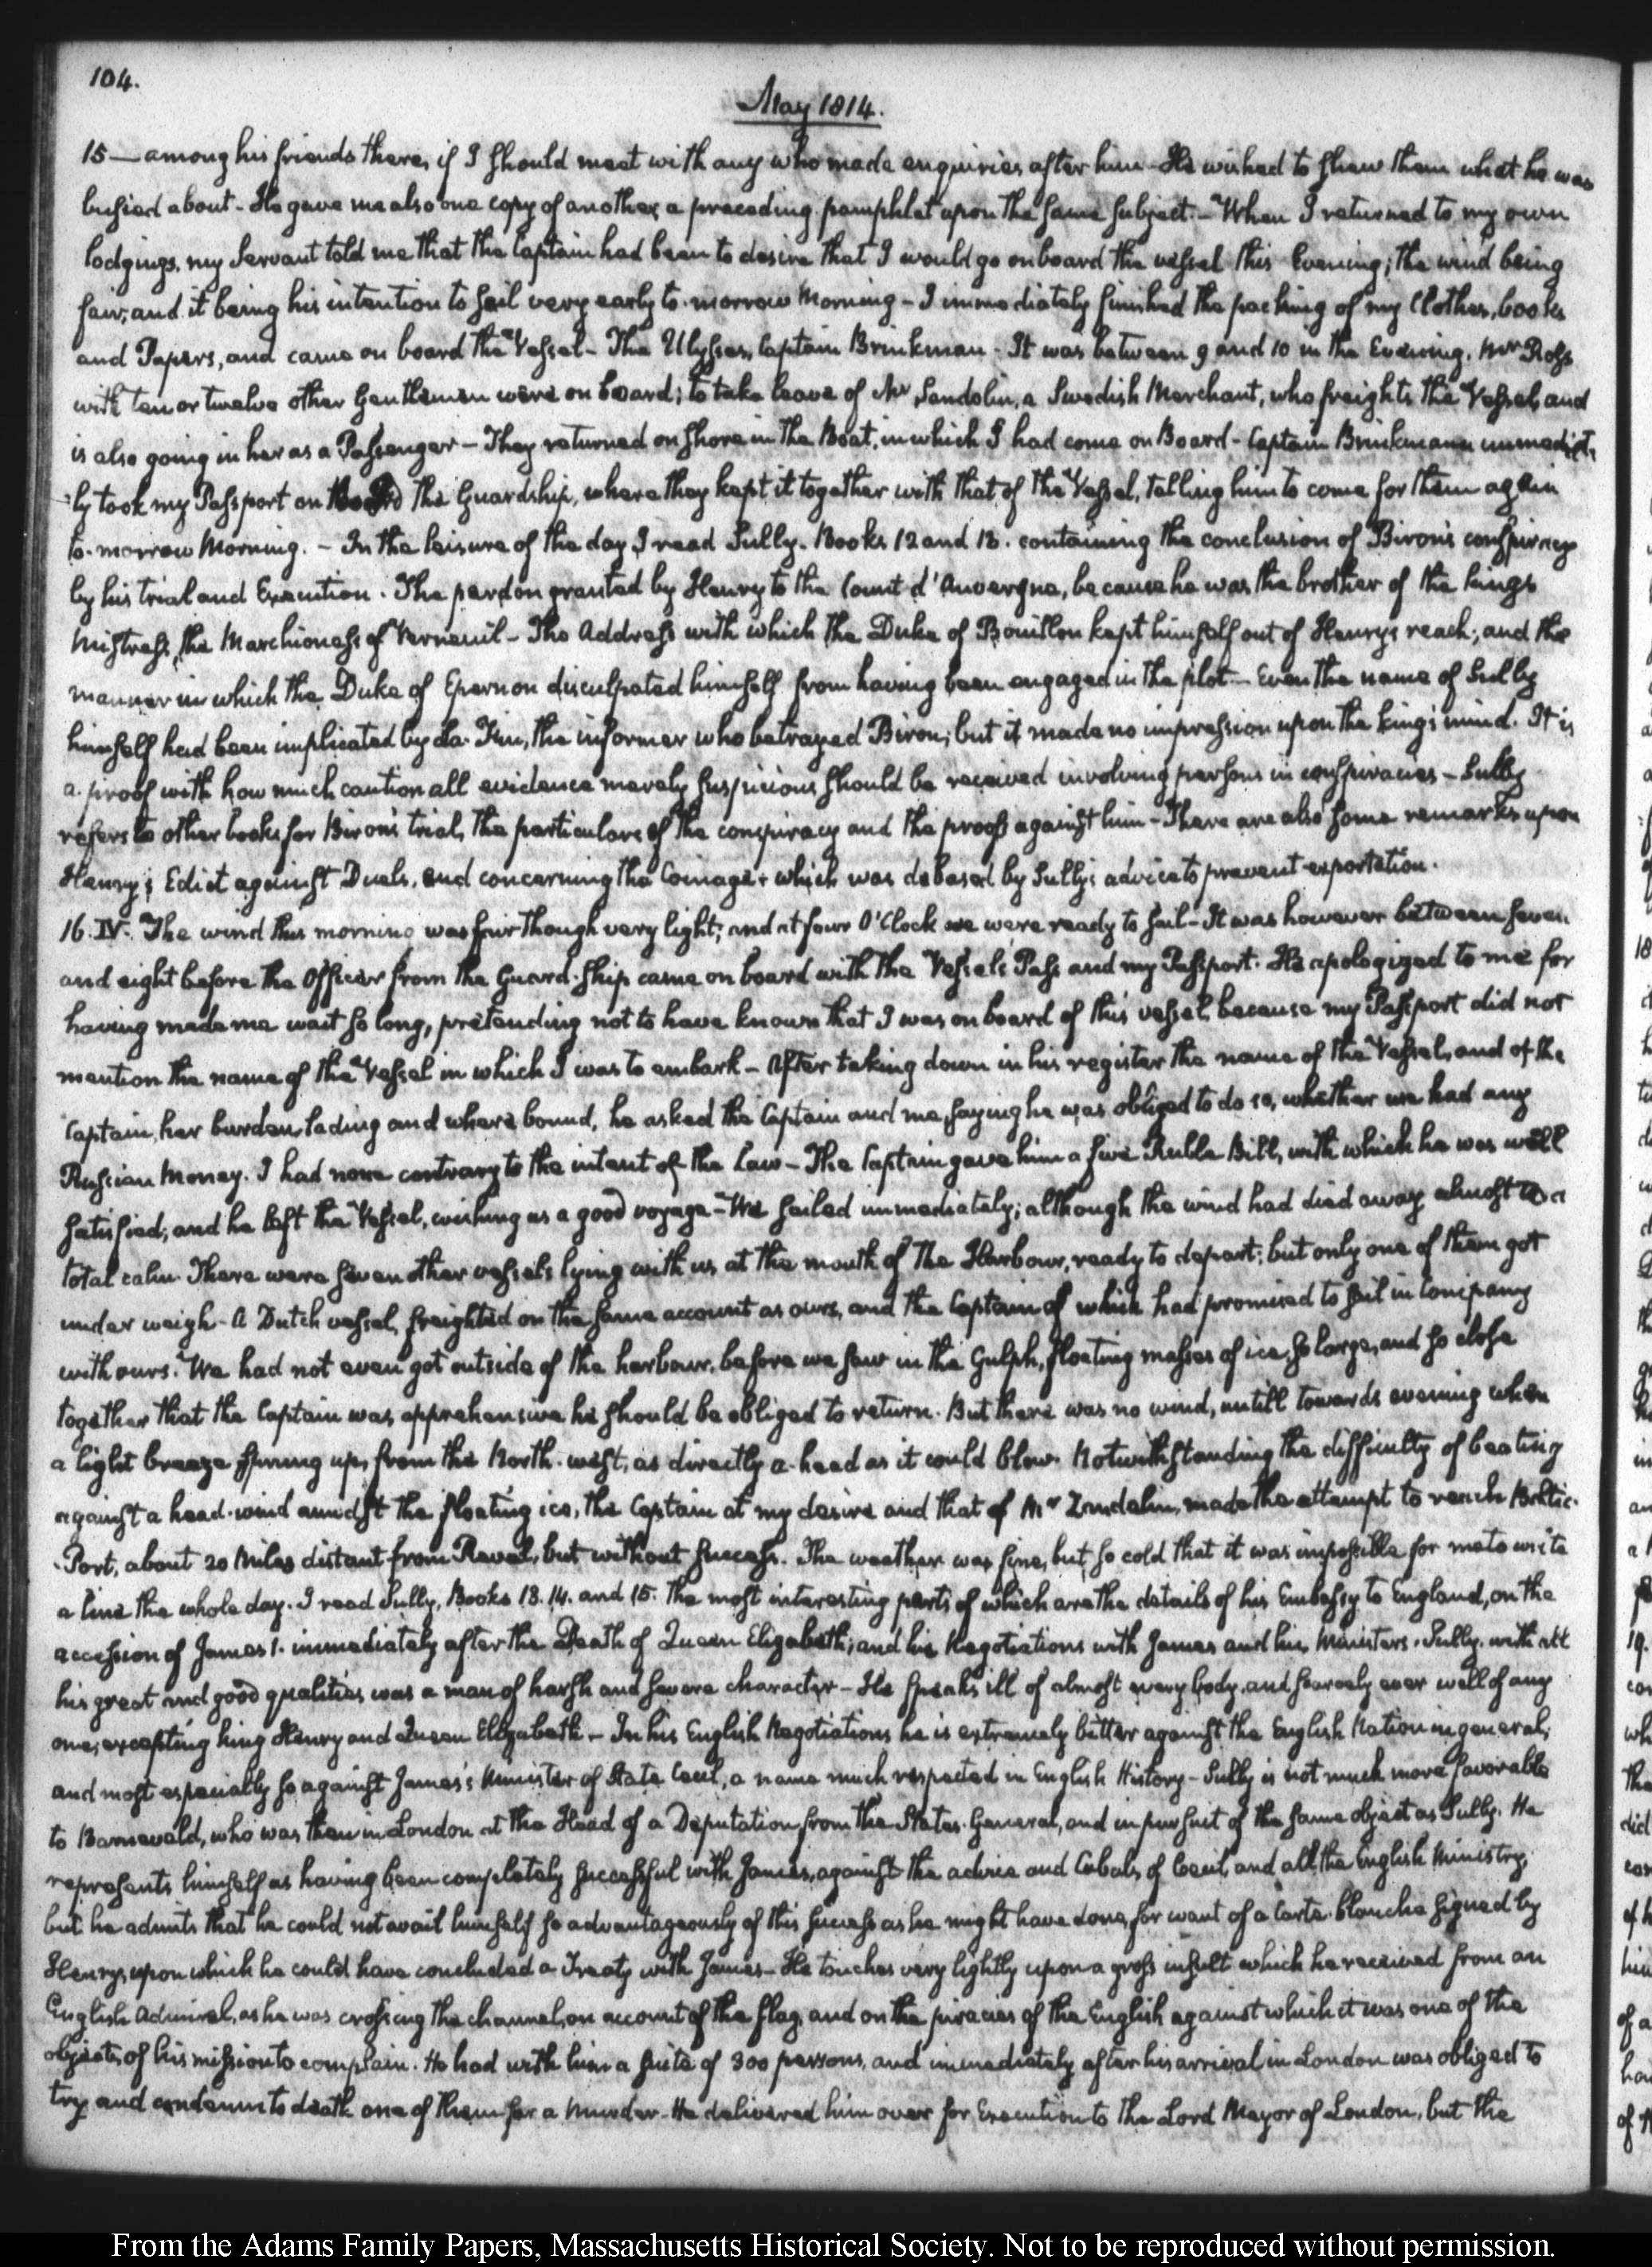 104.
May 1814.
15 — among his friends there, if I should meet with any who made enquiries after him - He wished to shew them what he was
busied about - He gave me also one copy of another, a preceding pamphlet upon the same subject. - When I returned to my own
lodgings, my Servant told me that the Captain had been to desire that I would go on board the vessel this Evening; the wind being
fair, and it being his intention to sail very early to-morrow Morning - I immediately finished the packing of my Clothes, books
and Papers, and came on board the Vessel - The Ulysses, Captain Brinkman - It was between 9 and 10 in the Evening. Mr Ross
with ten or twelve other Gentlemen were on board; to take leave of Mr Sandolin, a Swedish Merchant, who freights the Vessel, and
is also going in her as a Passenger - They returned on shore in the Boat, in which I had come on Board - Captain Brinkmann immediate-
-ly took my Passport on board the Guardship, where they kept it together with that of the Vessel, telling him to come for them again
to-morrow Morning. - In the leisure of the day I read Sully. Books 12 and 13. containing the conclusion of Biron's conspiracy
by his trial and Execution. The pardon granted by Henry to the Count d'Auvergne, because he was the brother of the king's
Mistress, the Marchioness of Verneuil - The Address with which the Duke of Bouillon kept himself out of Henry's reach; and the
manner in which the Duke of Epernon disculpated himself from having been engaged in the plot - Even the name of Sully
himself had been implicated by La-Fin, the informer who betrayed Biron; but it made no impression upon the king's mind. It is
a proof with how much caution all evidence merely suspicious should be received involving persons in conspiracies - Sully
refers to other books for Biron's trial, the particulars of the conspiracy and the proofs against him - There are also some remarks upon
Henry's Edict against Duels, and concerning the Coinage; which was debased by Sully's advice to prevent exportation.
16. IV. The wind this morning was fair though very light; and at four O'Clock we were ready to sail - It was however between seven
and eight before the Officer from the Guard-Ship came on board with the Vessel's Pass and my Passport. He apologized to me for
having made me wait so long, pretending not to have known that I was on board of this vessel, because my Passport did not
mention the name of the Vessel in which I was to embark - After taking down in his register the name of the Vessel, and of the
Captain, her burden, lading and where bound, he asked the Captain and me, saying he was obliged to do so, whether we had any
Russian Money. I had none contrary to the intent of the Law - The Captain gave him a five Ruble Bill, with which he was well
satisfied; and he left the Vessel, wishing us a good voyage - We sailed immediately; although the wind had died away almost to a
total calm. There were seven other vessels lying with us at the mouth of the Harbour, ready to depart; but only one of them got
under weigh - A Dutch vessel, freighted on the same account as ours, and the Captain of which had promised to sail in Company
with ours. We had not even got outside of the harbour, before we saw in the Gulph, floating masses of ice, so large, and so close
together that the Captain was apprehensive he should be obliged to return. But there was no wind, untill towards evening when
a light breeze sprung up, from the North-west, as directly a-head as it could blow. Notwithstanding the difficulty of beating
against a head-wind amidst the floating ice, the Captain at my desire and that of Mr made the attempt to reach Baltic-
-Port, about 20 Miles distant from Reval, but without success. The weather was fine, but so cold that it was impossible for me to write
a line the whole day. I read Sully, Books 13. 14. and 15. The most interesting parts of which are the details of his Embassy to England, on the
accession of James 1. immediately after the Death of Queen Elizabeth; and his Negotiations with James and his Ministers. Sully, with all
his great and good qualities was a man of harsh and severe character - He speaks ill of almost every body, and scarcely ever well of any
one, excepting king Henry and Queen Elizabeth - In his English Negotiations he is extremely bitter against the English Nation in general;
and most especially so against James's Minister of State Cecil, a name much respected in English History - Sully is not much more favorable
to Barneveld, who was then in London at the Head of a Deputation from the States-General, and in pursuit of the same object as Sully. He
represents himself as having been completely successful with James, against the advice and Cabals of Cecil, and all the English Ministry;
but he admits that he could not avail himself so advantageously of this success as he might have done, for want of a Carte-blanche signed by
Henry, upon which he could have concluded a Treaty with James - He touches very lightly upon a gross insult which he received from an
English Admiral, as he was crossing the channel, on account of the flag, and on the piracies of the English against which it was one of the
objects of his mission to complain. He had with him a suite of 300 persons, and immediately after his arrival in London was obliged to
try and condemn to death one of them for a Murder - He delivered him over for Execution to the Lord Mayor of London, but the
From the Adams Family Papers, Massachusetts Historical Society. Not to be reproduced without permission.